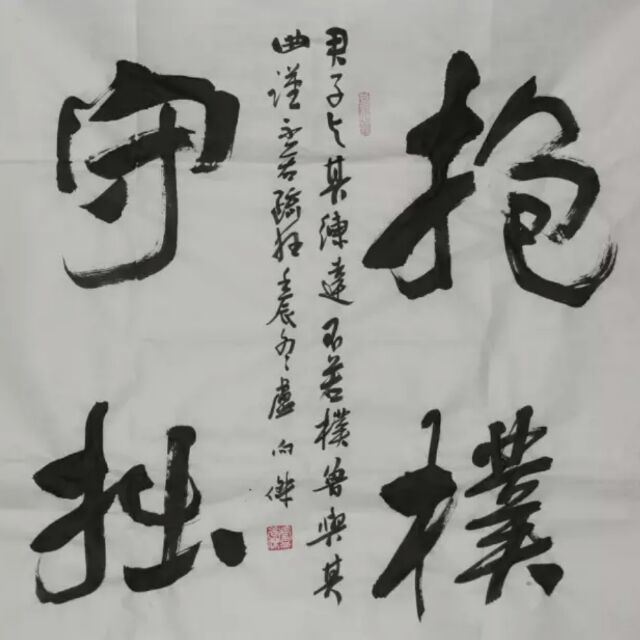 抱樸
守拙
君子與其練達不若樸魯與其
曲謹不若疏狂壬辰冬盧向傑